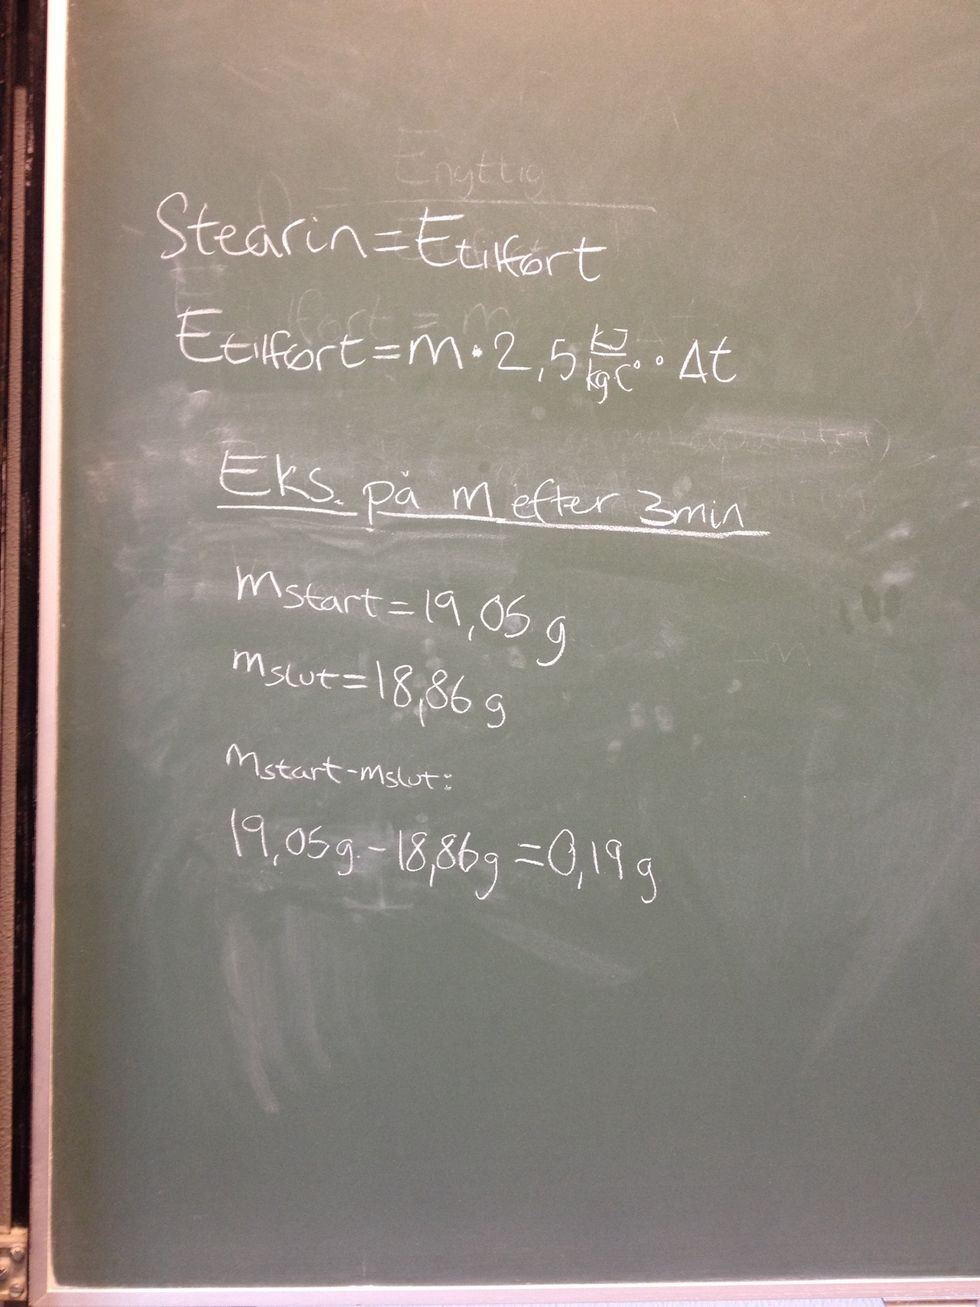 Enyttig
Stearin=Etilført
Etilført=m·2,5 kJ/kg·C° · Δt
Eks. på m efter 3min
mstart=19,05 g
mslut=18,86 g
mstart-mslut:
19,05g-18,86g=0,19g